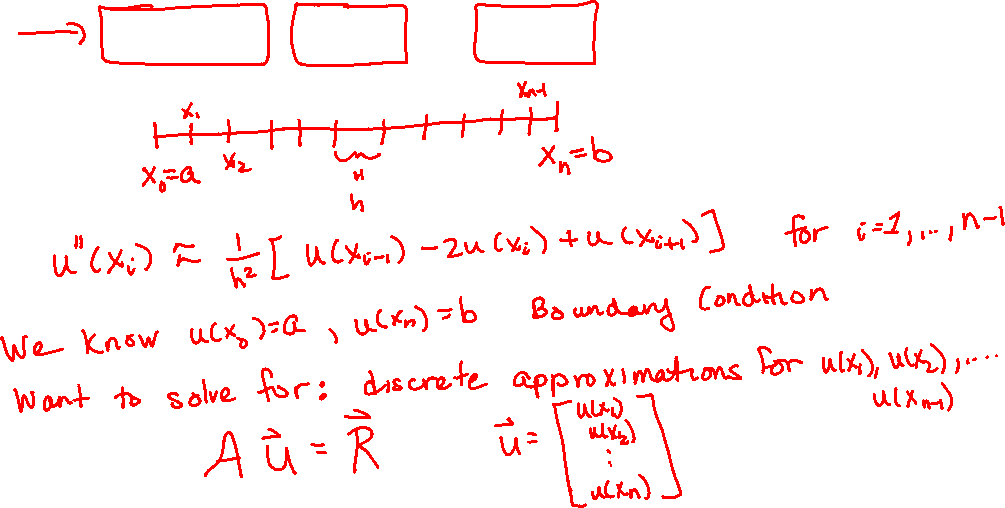 x₁ xₙ₋₁
x₀=a x₂ xₙ=b
"
h
u''(xᵢ) ≈ 1/h² [ u(xᵢ₋₁) - 2u(xᵢ) + u(xᵢ₊₁) ] for i=1,..., n-1
We know u(x₀)=a, u(xₙ)=b Boundary Condition
Want to solve for: discrete approximations for u(x₁), u(x₂),....
u(xₙ₋₁)
A u⃗ = R⃗ u⃗ = [ u(x₁)
u(x₂)
⋮
u(xₙ) ]